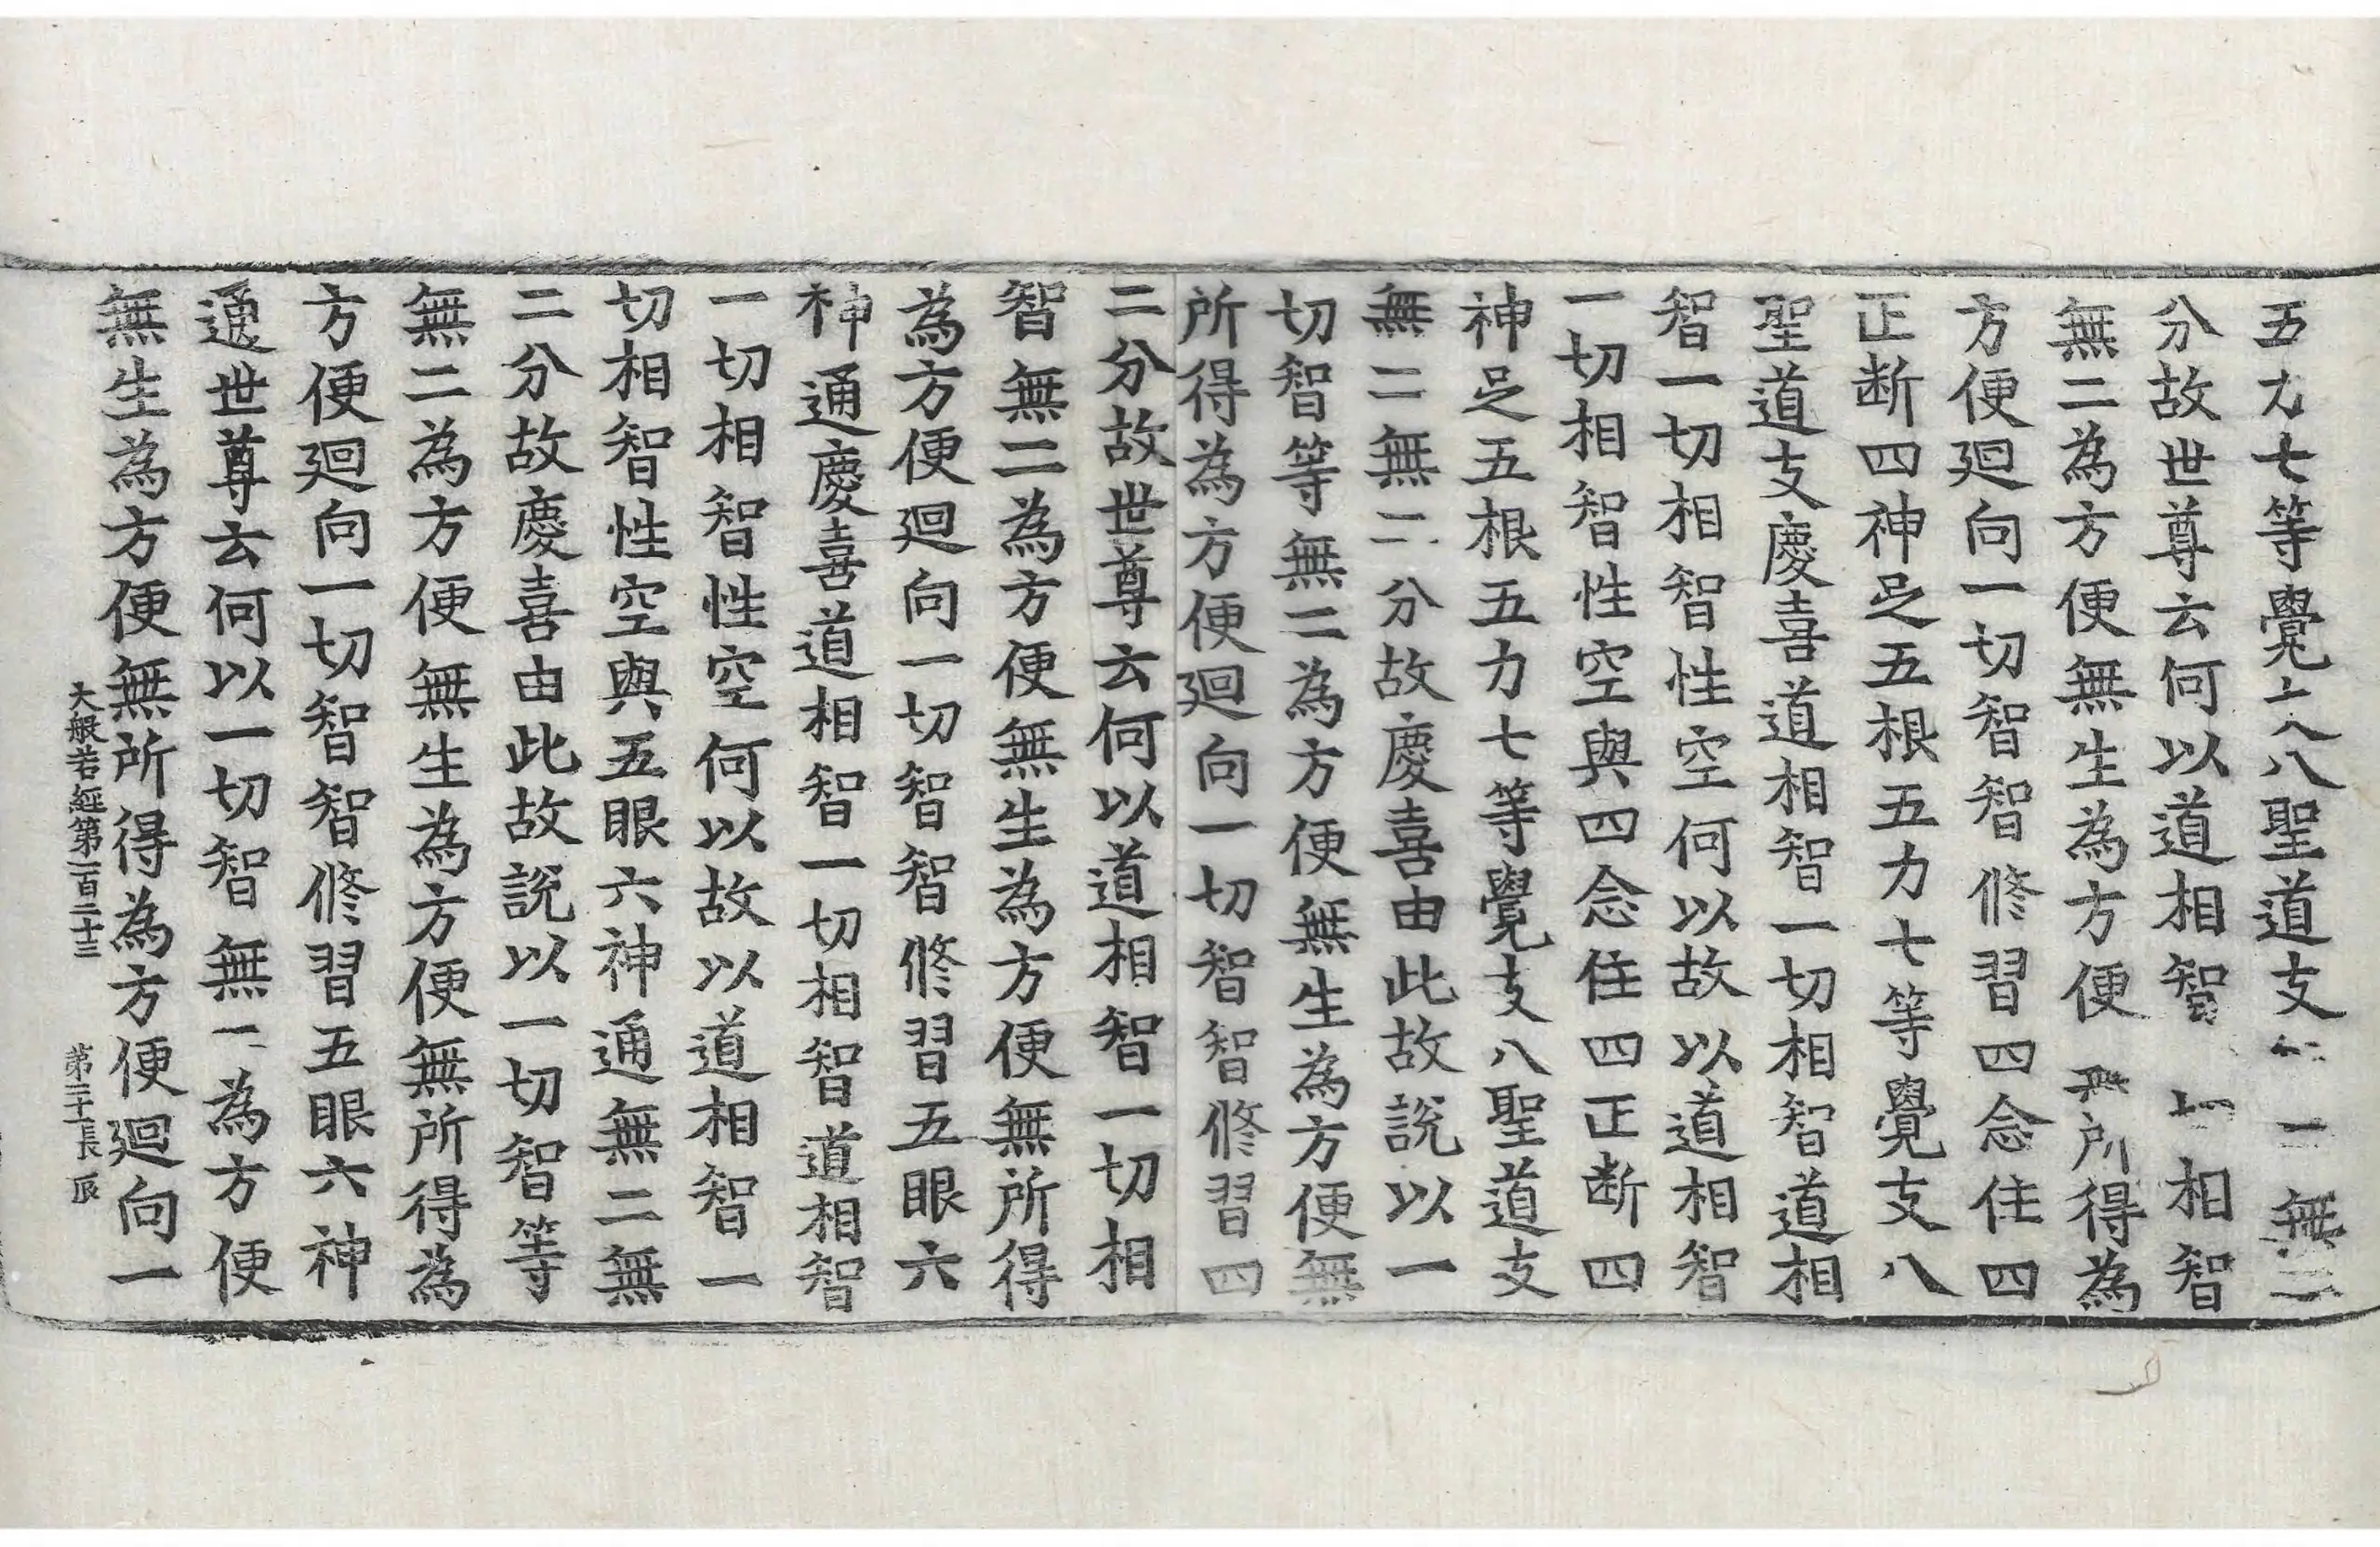 五力七等覺支八聖道支無二無二
分故世尊云何以道相智一切相智
無二為方便無生為方便無所得為
方便迴向一切智智修習四念住四
正断四神足五根五力七等覺支八
聖道支慶喜道相智一切相智道相
智一切相智性空何以故以道相智
一切相智性空與四念住四正断四
神足五根五力七等覺支八聖道支
無二無二分故慶喜由此故說以一
切智等無二為方便無生為方便無
所得為方便迴向一切智智修習四
二分故世尊云何以道相智一切相
智無二為方便無生為方便無所得
為方便迴向一切智智修習五眼六
神通慶喜道相智一切相智道相智
一切相智性空何以故以道相智一
切相智性空與五眼六神通無二無
二分故慶喜由此故說以一切智等
無二為方便無生為方便無所得為
方便迴向一切智智修習五眼六神
通世尊云何以一切智無二為方便
無生為方便無所得為方便迴向一
大般若經第一百二十三 第二十長